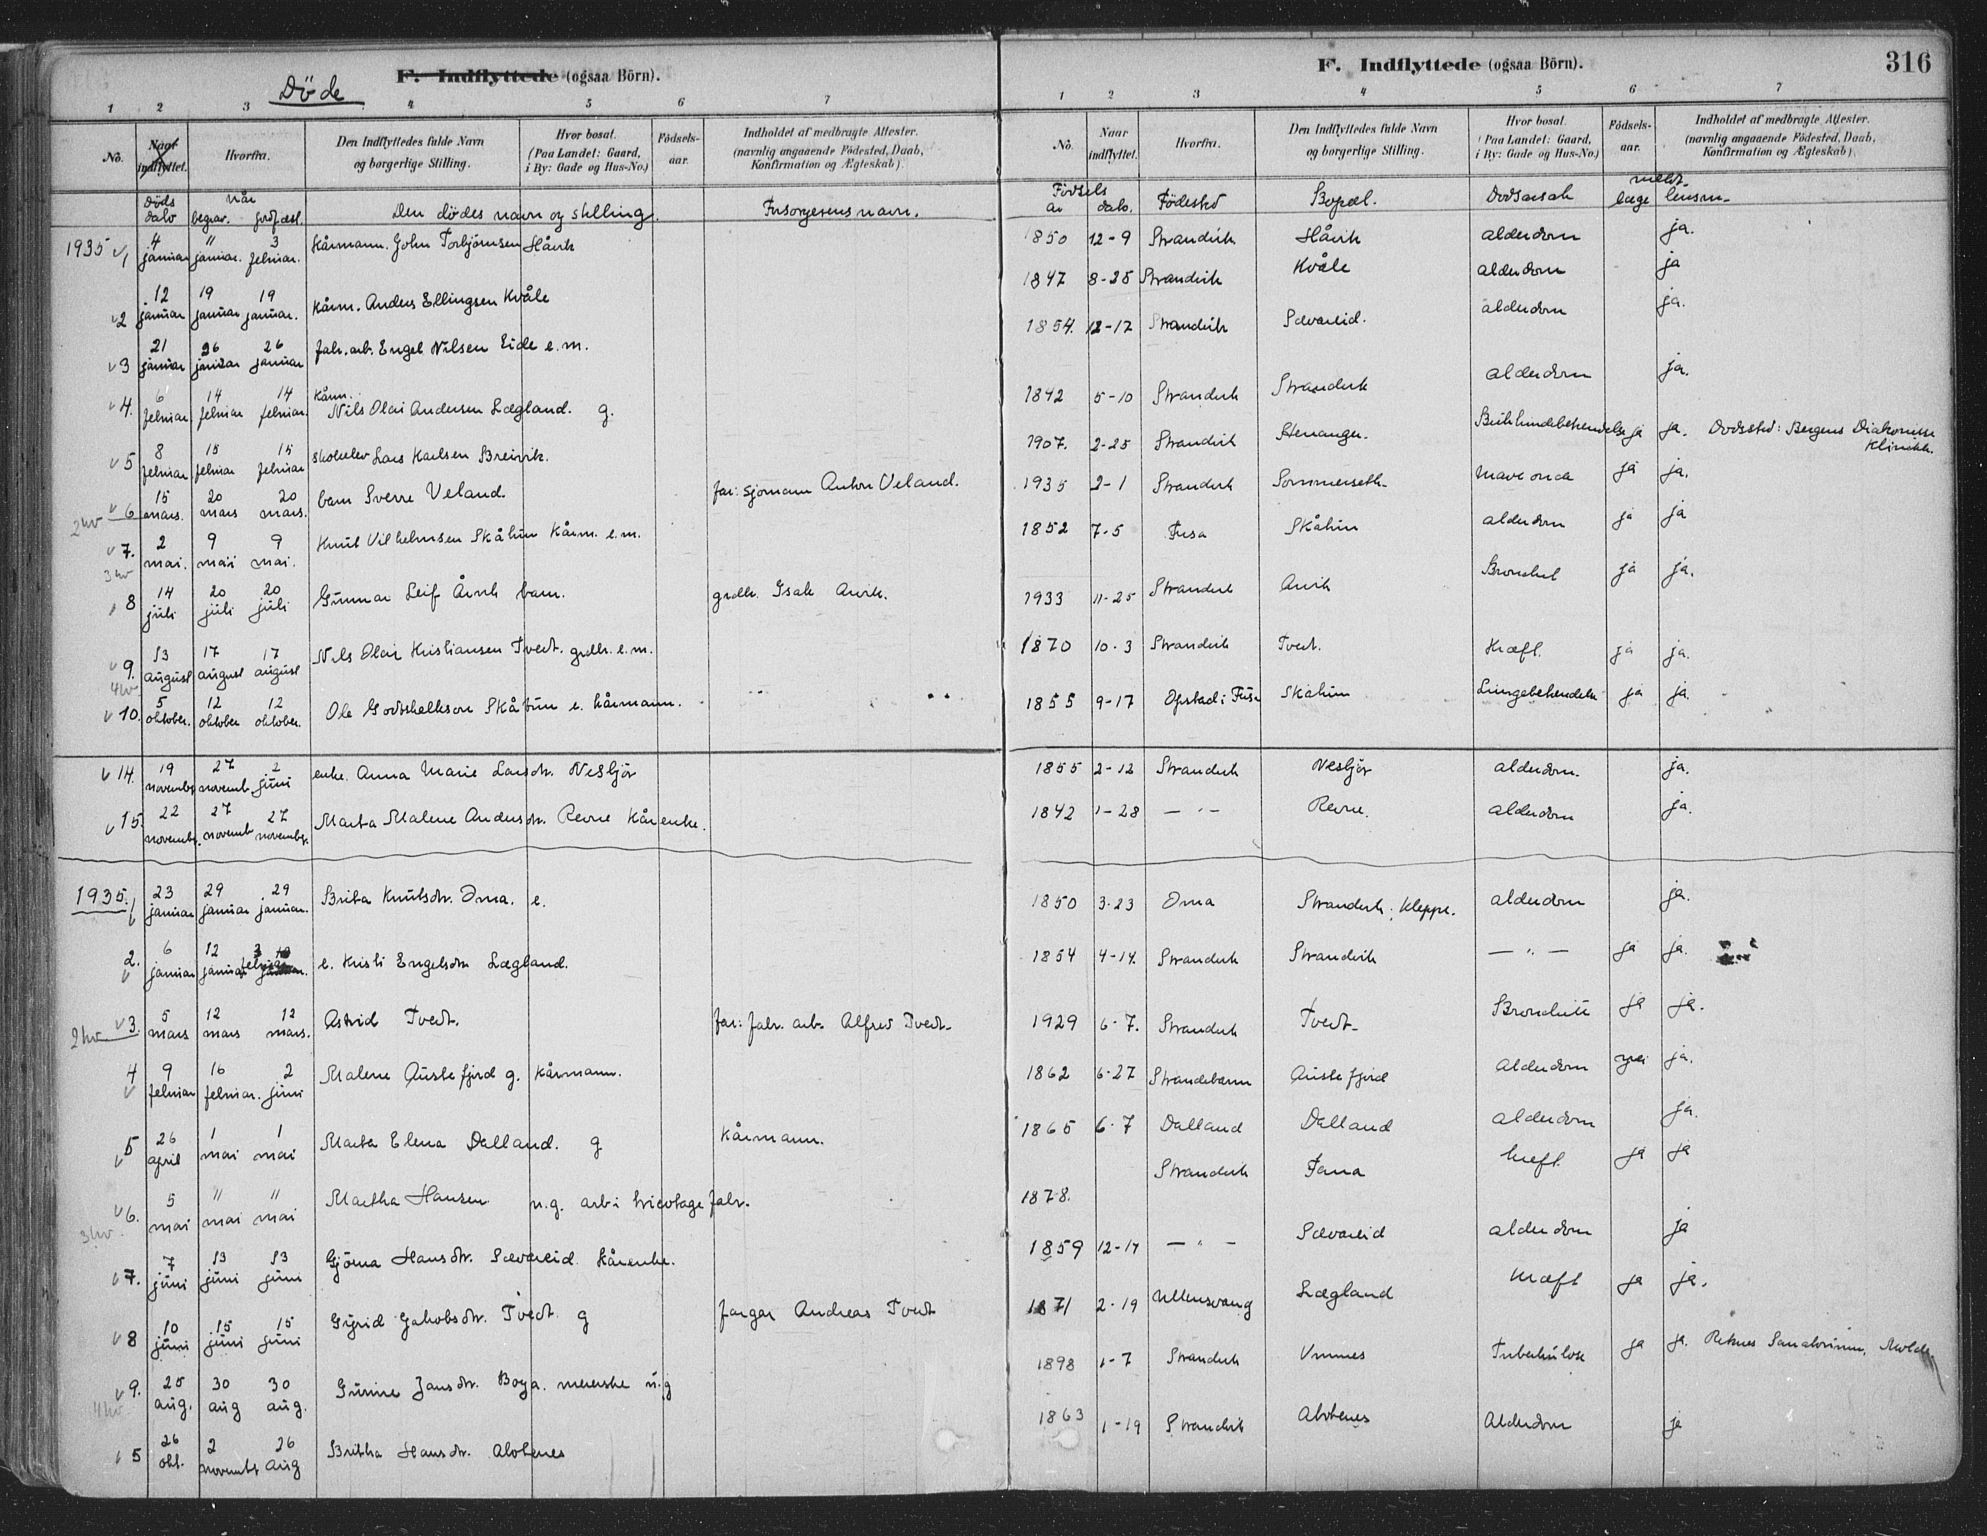 F. Indflyttede (ogsaa Börn).
Døde
1 2 3 4 5 6 7
No.
Naar indflyttet.
Hvorfra.
Den Indflyttedes fulde Navn
og borgerlige Stilling.
Hvor bosat.
(Paa Landet: Gaard,
i By: Gade og Hus-No.)
Födsels-
aar.
Indholdet af medbragte Attester.
(navnlig angaaende Födested, Daab,
Konfirmation og Ægteskab).
Døds dato
når
begrav. jordfæst.
Den dødes navn og stilling.
Forsørgerens navn.
1935 1 4 januar 11 januar. 3 februar. Kårmann. John Torbjørnsen Håvik
2 12 januar 19 januar 19 januar. Kårm. Anders Ellingsen Kvåle
3 21 januar 26 januar 26 januar fabr. arb. Engel Nilsen Eide e. m.
4. 6 februar 14 februar 14 februar. Kårm. Nils Olai Andersen Lægland. g.
5 8 februar 15 februar 15 februar Lars Karlsen Breivik.
2 kv 6 15 mars. 20 mars 20 mars. barn Sverre Veland. far: sjømann Anton Veland.
7. 2 mai. 9 mai 9 mai. Knut Vilhelmsen Skåtun Kårm. e. m.
3 kv
8 14 juli 20 juli 20 juli Gunnar Leif Årvik barn. grdbr. Isak Arvik.
9. 13 august 17 august 17 august Nils Olai Kristiansen Tvedt. grdbr. e. m.
4 kv.
10. 5 oktober. 12 oktober 12 oktober. Ole Godtskalkson Skåtun e. kårmann.
14. 19 novemb. 27 novemb. 2 juni enke. Anna Marie Larsdtr. Nesbjør
15. 22 novemb. 27 novemb. 27 november. Marta Malene Andersdtr. Revne Kårenke.
1935. 1 23 januar 29 januar 29 januar. Brita Knutsdtr. Oma. e.
2. 6 januar 12 januar 3 februar e. Kristi Engelsdtr. Lægland.
2 kv 3. 5 mars 12 mars 12 mars. Astrid Tvedt. far: fabr. arb. Alfred Tvedt.
4 9 februar 16 februar. 2 juni Malene Austefjord g. kårmann.
5 26 april 1 mai 1 mai Marta Elena Dalland. g kårmann.
6. 5 mai 11 mai 11 mai Martha Hansen u. g. arb i tricotage fabr.
3 kv.
7. 7 juni 13 juni 13 juni Gjøma Hansdtr. Sævareid. Kårenke.
8 10 juni 15 juni 15 juni Gyrid Jakobsdtr. Tvedt. g Andreas Tvedt
9. 25 aug. 30 aug 30 aug. Gurine Jansdtr. Boga. meierske u. g
4 kv.
5 26 okt. 2 novemb 26 aug Britha Hansdtr. Alvtenes
F. Indflyttede (ogsaa Börn).
316
1 2 3 4 5 6 7
No.
Naar
indflyttet.
Hvorfra.
Den Indflyttedes fulde Navn
og borgerlige Stilling.
Hvor bosat.
(Paa Landet: Gaard,
i By: Gade og Hus-No.)
Födsels-
aar.
Indholdet af medbragte Attester.
(navnlig angaaende Födested, Daab,
Konfirmation og Ægteskab).
Fødsels
år dato. Fødested Bopæl. Dødsårsak meldt. læge lensm.
1850 12-9 Strandvik Håvik alderdom ja.
1847 8-28 Strandvik Kvåle alderdom ja
1854. 12-17 Strandvik Sævareid. alderdom ja.
1842 5-10 Strandvik Strandvik alderdom ja.
1907. 2-25 Strandvik Stenanger. Bukhindebetendelse ja ja. Dødssted: Bergens Diakonisse Klinikk.
1935 2-1 Strandvik Sommerseth. Maveonde ja ja.
1852 7-5 Fusa Skåtun alderdom ja ja
1933 11-25 Strandvik Arvik Bronchit ja ja.
1870 10-3 Strandvik Tvedt. Kræft. ja ja.
1855 9-17 Opstad i Fusa Skåtun Lungebetendelse ja ja.
1855 2-12 Strandvik Nesbjør alderdom. ja.
1842 1-28 — " — Revne. alderdom ja.
1850 3-23 Oma Strandvik, Kleppe. alderdom ja.
1854 4-14. Strandvik Strandvik — " — ja ja.
1929 6-7. Strandvik Tvedt. Bronchitt ja ja.
1862 6-27 Strandebarm Austefjord alderdom nei ja.
1865 6-7 Dalland Dalland alderdom ja.
1878. Strandvik Fana kræft. ja ja
1859 12-17 — " — Sævareid alderdom ja
1871 2-19 Ullensvang Lægland kræft ja ja.
1898 1-7 Strandvik Vinnes Tuberkulose ja ja. Reknes Sanatorium, Molde
1863 1-19 Strandvik Alvtenes Alderdom ja